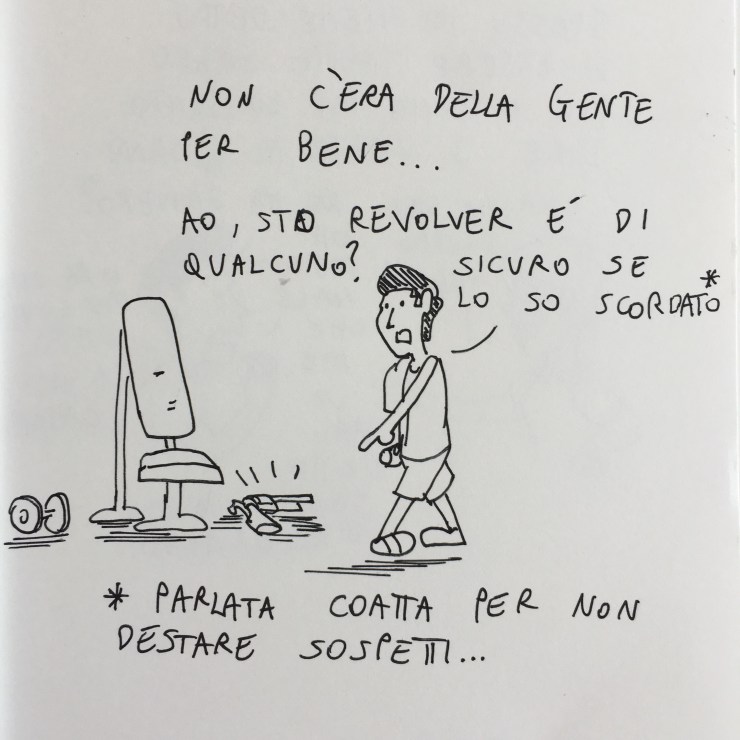 NON C'ERA DELLA GENTE
PER BENE...
AO, STO REVOLVER E' DI
QUALCUNO?
SICURO SE
LO SO SCORDATO*
* PARLATA COATTA PER NON
DESTARE SOSPETTI...